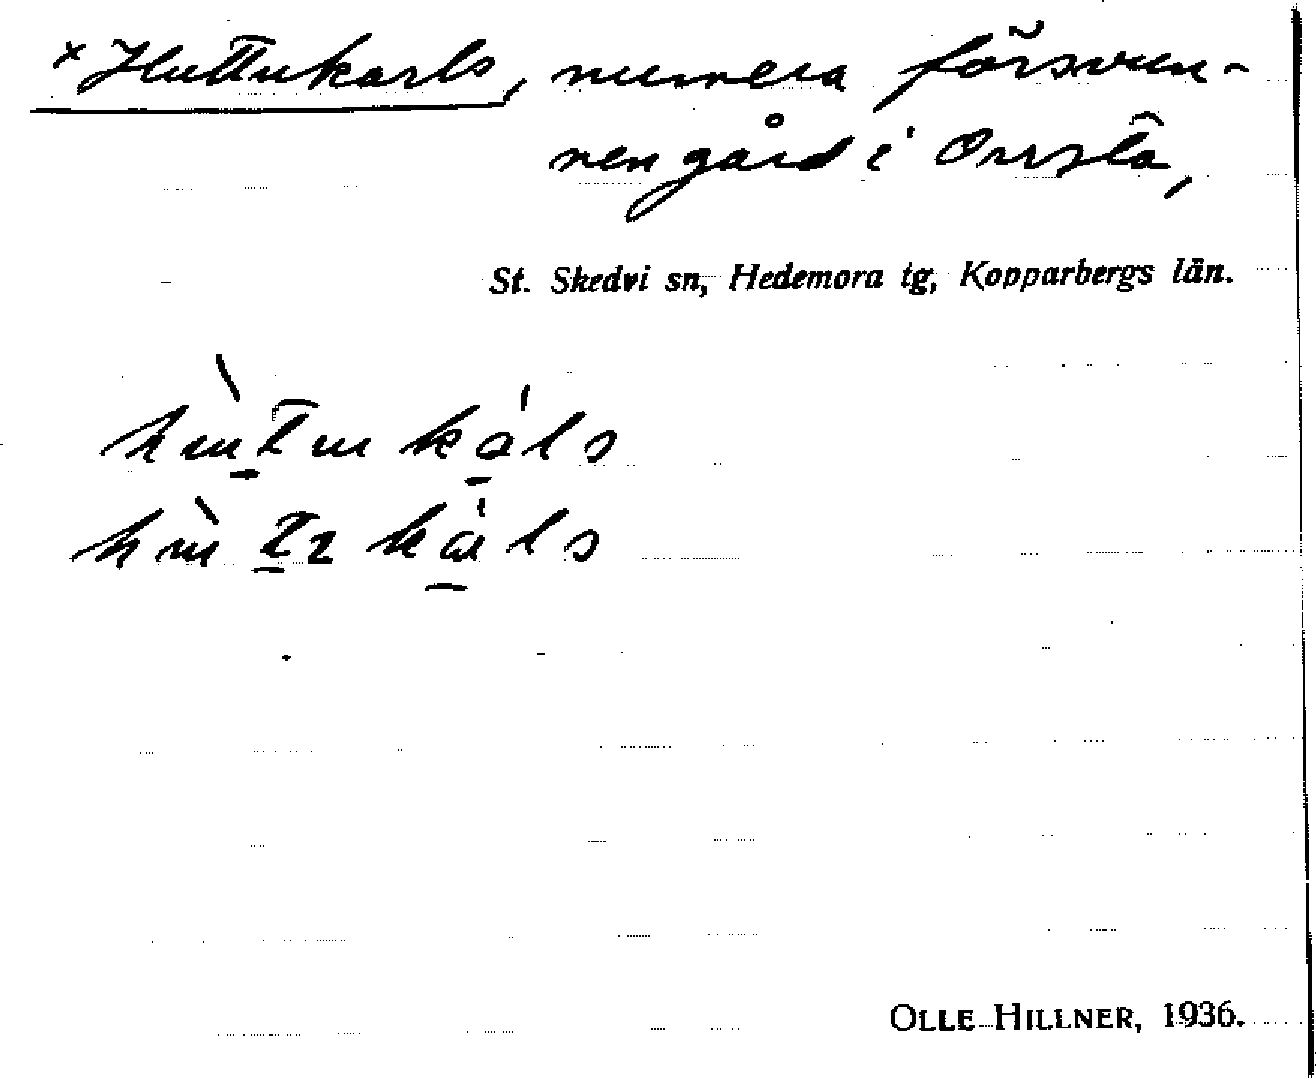 × Huttukarls, numera försvun-
nen gård i Orrsta,
St. Skedvi sn, Hedemora tg, Kopparbergs län.
OLLE HILLNER, 1936.